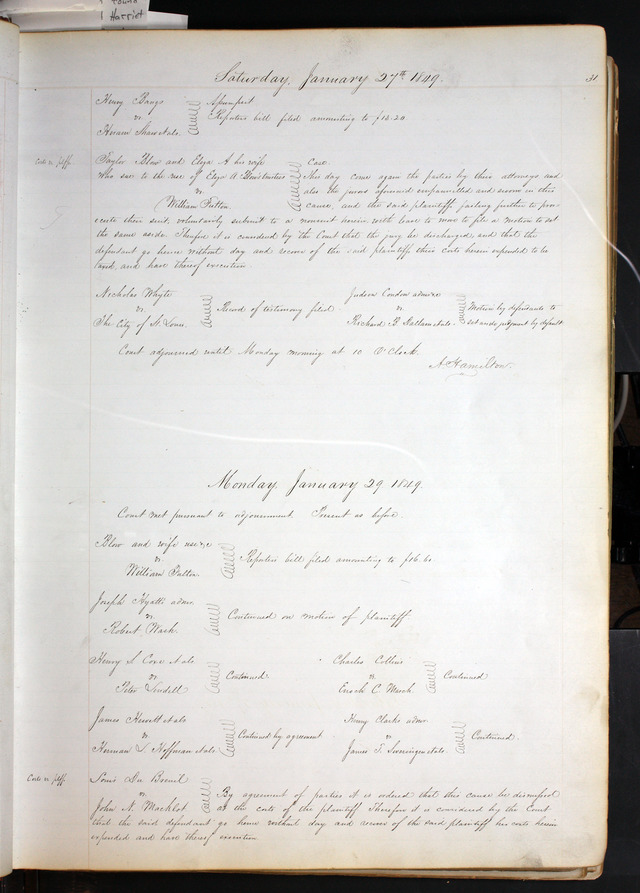 Found
Harriet
Saturday, January 27th 1849.
31
Henry Bangs
vs
Hiram Shaw et als.
Assumpsit
Reporters bill filed amounting to $12.20
Costs vs plff.
Taylor Blow and Eliza A his wife
Who sue to the use of Eliza A.
vs
William Fulton.
Case
This day come again the parties by their attorneys and
also the jurors aforesaid empannelled and sworn in this
cause, and the said plaintiff, failing further to pros-
ecute their suit, voluntarily submit to a nonsuit herein with leave to move to file a motion to set
the same aside. Therefore it is considered by the Court that the jury be discharged, and that the
defendant go hence without day and recover of the said plaintiff their costs herein expended to be
taxed, and have thereof execution.
Nicholas Whyte
vs
The City of St. Louis.
Record of testimony filed.
Judson Condon admr.
vs
Richard B. Dallam et als.
Motion by defendants to
set aside judgment by default
Court adjourned until Monday morning at 10 O'Clock.
A Hamilton.
Monday, January 29 1849.
Court met pursuant to adjournment. Present as before.
Blow and wife use &c
vs
William Fulton
Reporters bill filed amounting to $16.60
Joseph Hyatt's admr
vs
Robert Wash.
Continued on motion of plaintiff
Henry S. Coxe et als
vs
Peter Lindell
Continued.
Charles Collins
vs
Enoch C. March.
Continued
James Hewitt et als
vs
Herman L. Hoffman et als.
Continued by agreement
Henry Clarks admr.
vs
James T. Swearingen et als.
Continued.
Costs vs plff
Louis Du Breuil
vs
John N. Macklot
By agreement of parties it is ordered that this cause be dismissed
at the costs of the plaintiff. Therefore it is considered by the Court
that the said defendant go hence without day and recover of the said plaintiff his costs herein
expended and have thereof execution.